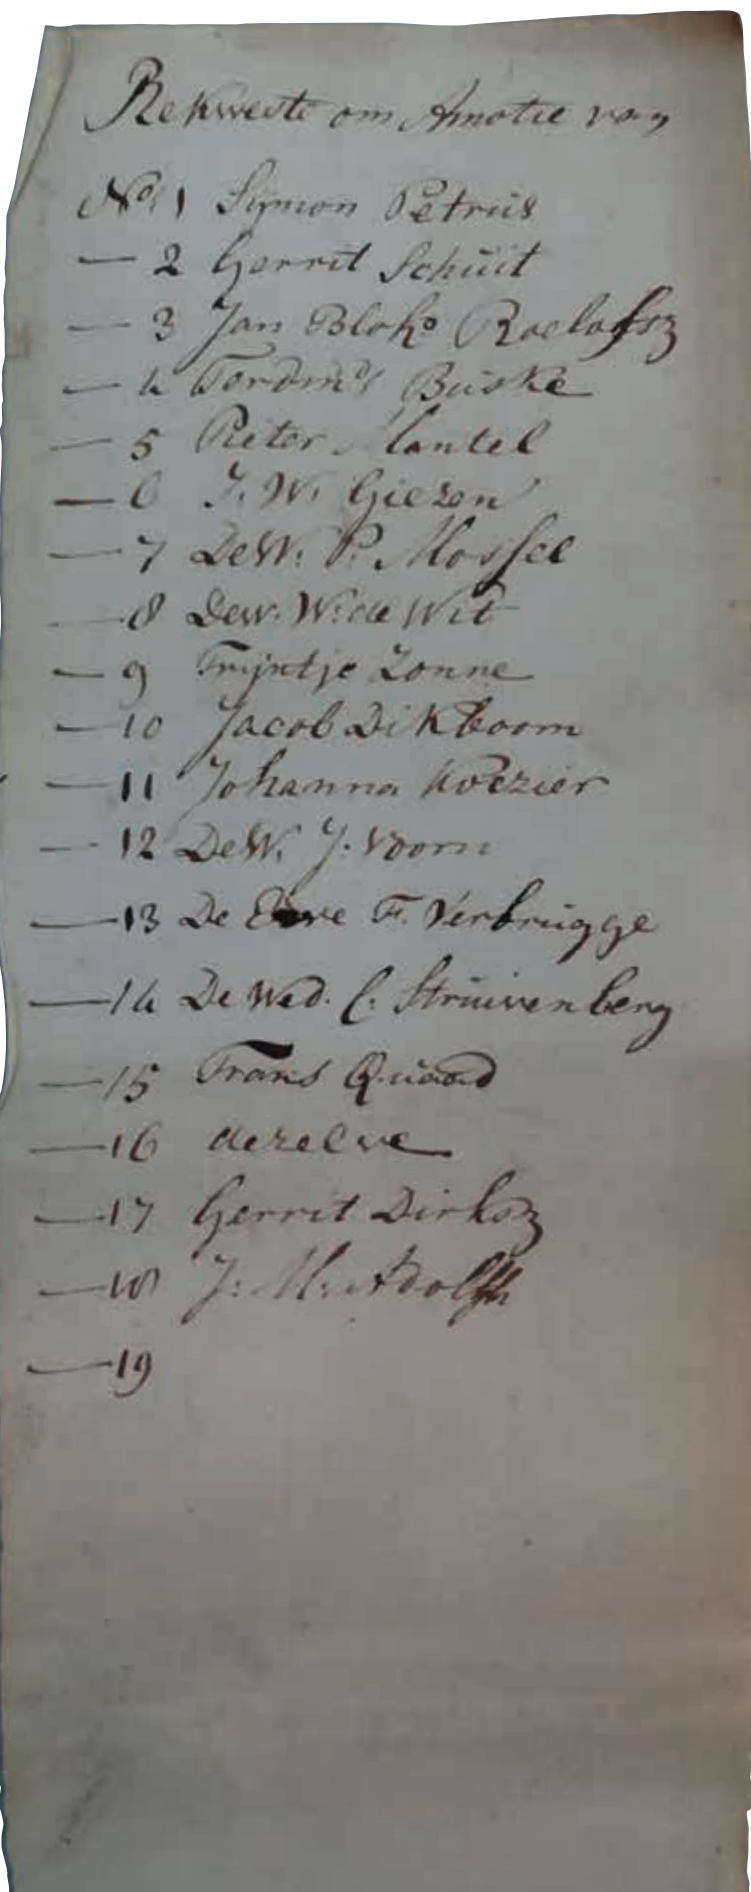 Rekweste om Amotie van
No. 1 Sijmon Petrus
— 2 Gerrit Schuit
— 3 Jan Blok Roelofsz
— 4 Ferdind Buske
— 5 Pieter Mantel
— 6 J. W. Giezen
— 7 DeW. P. Mossel
— 8 Dew. W. de Wit
— 9 Trijntje Zonne
— 10 Jacob Dikboom
— 11 Johanna Koezier
— 12 DeW. J. Voorn
— 13 De F. Verbrugge
— 14 De Wed. C. Struivenberg
— 15 Frans Quaad
— 16 dezelve
— 17 Gerrit Dirksz
— 18 J: M: Adolfh
— 19